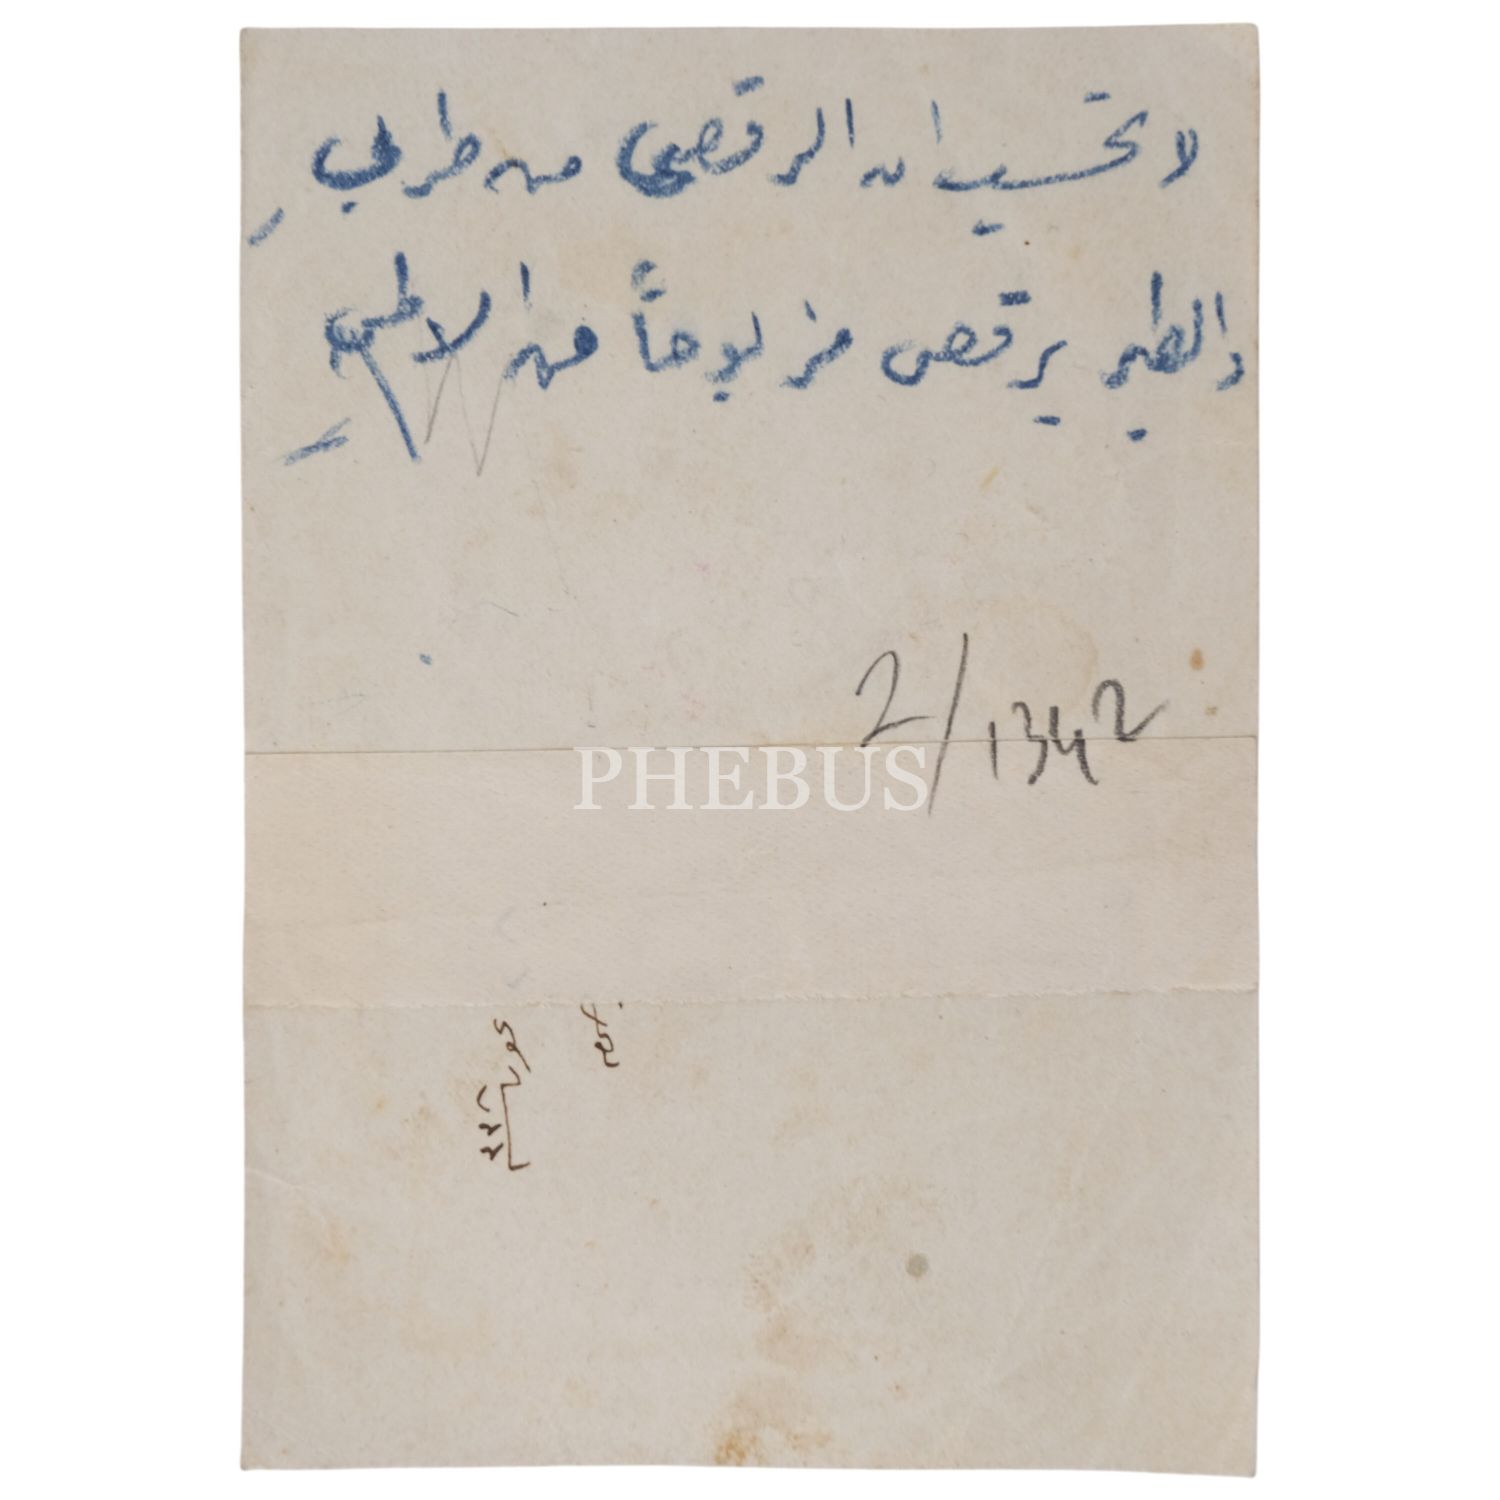 لا تحسب ان الرقص من طربٍ
والطير يرقص مذبوحاً من الالم
2/1342
PHEBUS